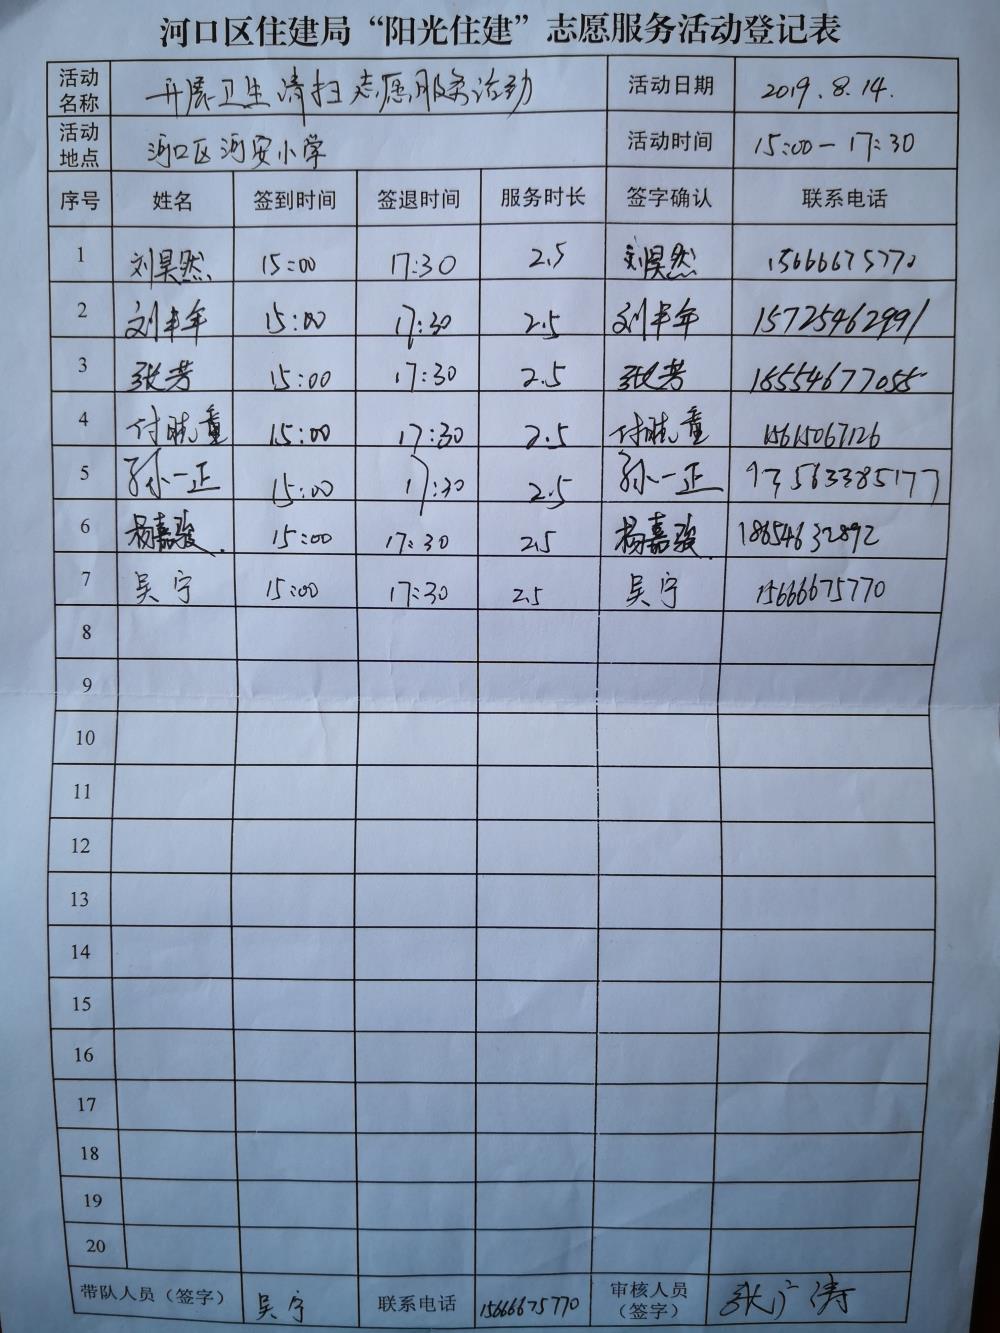 河口区住建局“阳光住建”志愿服务活动登记表
活动名称 开展卫生清扫志愿服务活动 活动日期 2019.8.14.
活动地点 河口区河安小学 活动时间 15:00-17:30
序号 姓名 签到时间 签退时间 服务时长 签字确认 联系电话
1 刘昊然 15:00 17:30 2.5 刘昊然 15666675770
2 刘丰年 15:00 17:30 2.5 刘丰年 15725462991
3 张芳 15:00 17:30 2.5 张芳 18554677055
4 付晓童 15:00 17:30 2.5 付晓童 15615067126
5 孙一正 15:00 17:30 2.5 孙一正
6 杨嘉骏. 15:00 17:30 2.5 杨嘉骏. 18654632892
7 吴宁 15:00 17:30 2.5 吴宁 15666675770
8
9
10
11
12
13
14
15
16
17
18
19
20
带队人员（签字） 吴宁 联系电话 15666675770 审核人员（签字） 张广涛